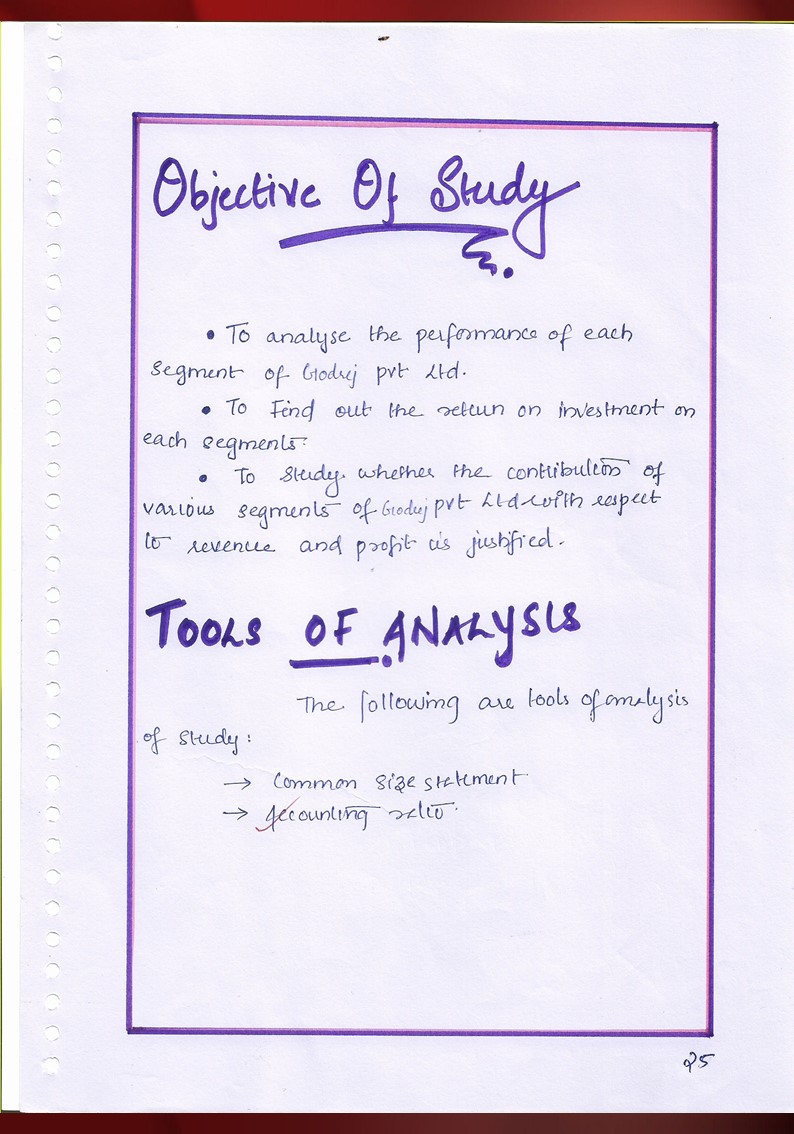 Objective Of Study
• To analyse the performance of each
segment of Godrej pvt Ltd.
• To Find out the return on investment on
each segments.
• To study whether the contribution of
various segments of Godrej pvt Ltd with respect
to revenue and profit is justified.
TOOLS OF ANALYSIS
The following are tools of analysis
of study:
→ Common size statement
→ Accounting ratio.
25